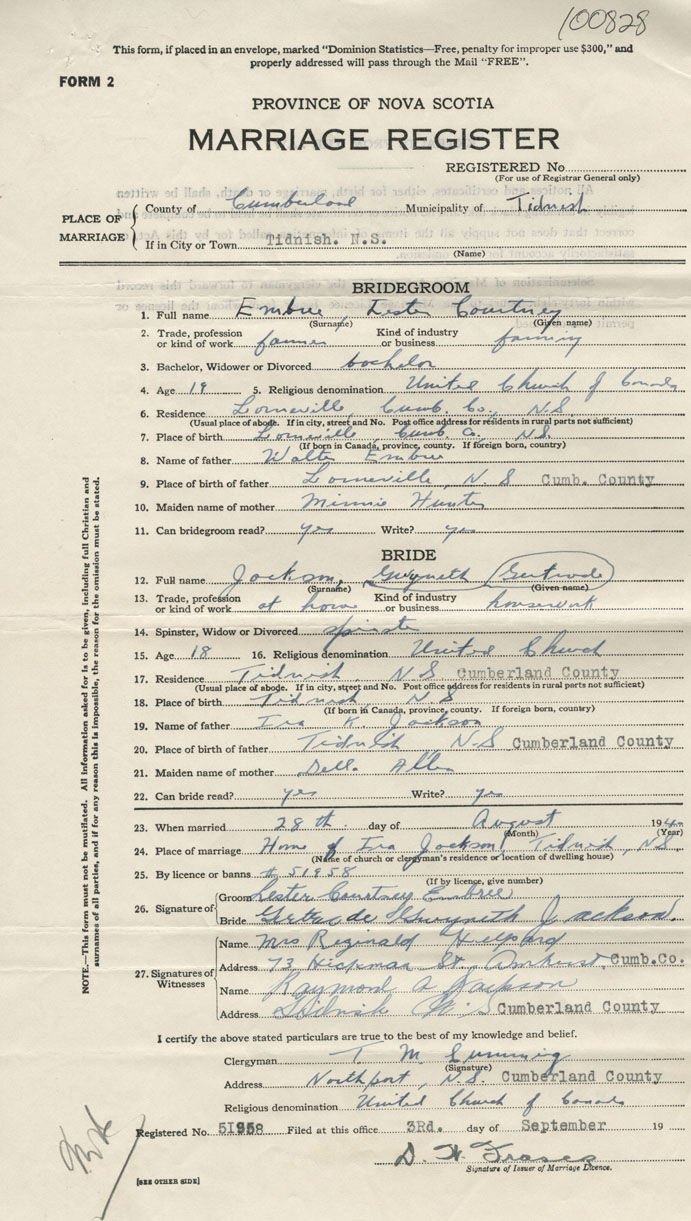 100828
This form, if placed in an envelope, marked "Dominion Statistics—Free, penalty for improper use $300," and
properly addressed will pass through the Mail "FREE".
FORM 2
PROVINCE OF NOVA SCOTIA
MARRIAGE REGISTER
REGISTERED No.
(For use of Registrar General only)
PLACE OF MARRIAGE
County of Cumberland Municipality of Tidnish
If in City or Town Tidnish. N.S.
(Name)
BRIDEGROOM
1. Full name Embree, Lester Courtney
(Surname) (Given name)
2. Trade, profession or kind of work farmer Kind of industry or business farming
3. Bachelor, Widower or Divorced bachelor
4. Age 19 5. Religious denomination United Church of Canada
6. Residence Lorneville, Cumb. Co., N.S.
(Usual place of abode. If in city, street and No. Post office address for residents in rural parts not sufficient)
7. Place of birth Lorneville, Cumb. Co., N.S.
(If born in Canada, province, county. If foreign born, country)
8. Name of father Walter Embree
9. Place of birth of father Lorneville, N S Cumb. County
10. Maiden name of mother Minnie Hunter
11. Can bridegroom read? yes Write? yes
BRIDE
12. Full name Jackson, Gwyneth Gertrude
(Surname) (Given name)
13. Trade, profession or kind of work at home Kind of industry or business housework
14. Spinster, Widow or Divorced spinster
15. Age 18 16. Religious denomination United Church
17. Residence Tidnish, N S Cumberland County
(Usual place of abode. If in city, street and No. Post office address for residents in rural parts not sufficient)
18. Place of birth Tidnish N S
(If born in Canada, province, county. If foreign born, country)
19. Name of father Ira K. Jackson
20. Place of birth of father Tidnish N.S Cumberland County
21. Maiden name of mother Della Allen
22. Can bride read? yes Write? yes
23. When married 28th. day of August 19
(Month) (Year)
24. Place of marriage Home of Ira Jackson, Tidnish, N S
(Name of church or clergyman's residence or location of dwelling house)
25. By licence or banns # 51958
(If by licence, give number)
26. Signature of
Groom Lester Courtney Embree
Bride Gertrude Gwyneth Jackson.
27. Signatures of Witnesses
Name Mrs Reginald
Address 73 Hickman St., Amherst, Cumb.Co.
Name Raymond Jackson
Address Tidnish N. S Cumberland County
I certify the above stated particulars are true to the best of my knowledge and belief.
Clergyman T. M. Cumming
(Signature)
Address Northport, N.S. Cumberland County
Religious denomination United Church of Canada
Registered No. 51958 Filed at this office 3Rd. day of September 19
D. H. Fraser
Signature of Issuer of Marriage Licence.
[SEE OTHER SIDE]
NOTE.—This form must not be mutilated. All information asked for is to be given, including full Christian and
surnames of all parties, and if for any reason this is impossible, the reason for the omission must be stated.